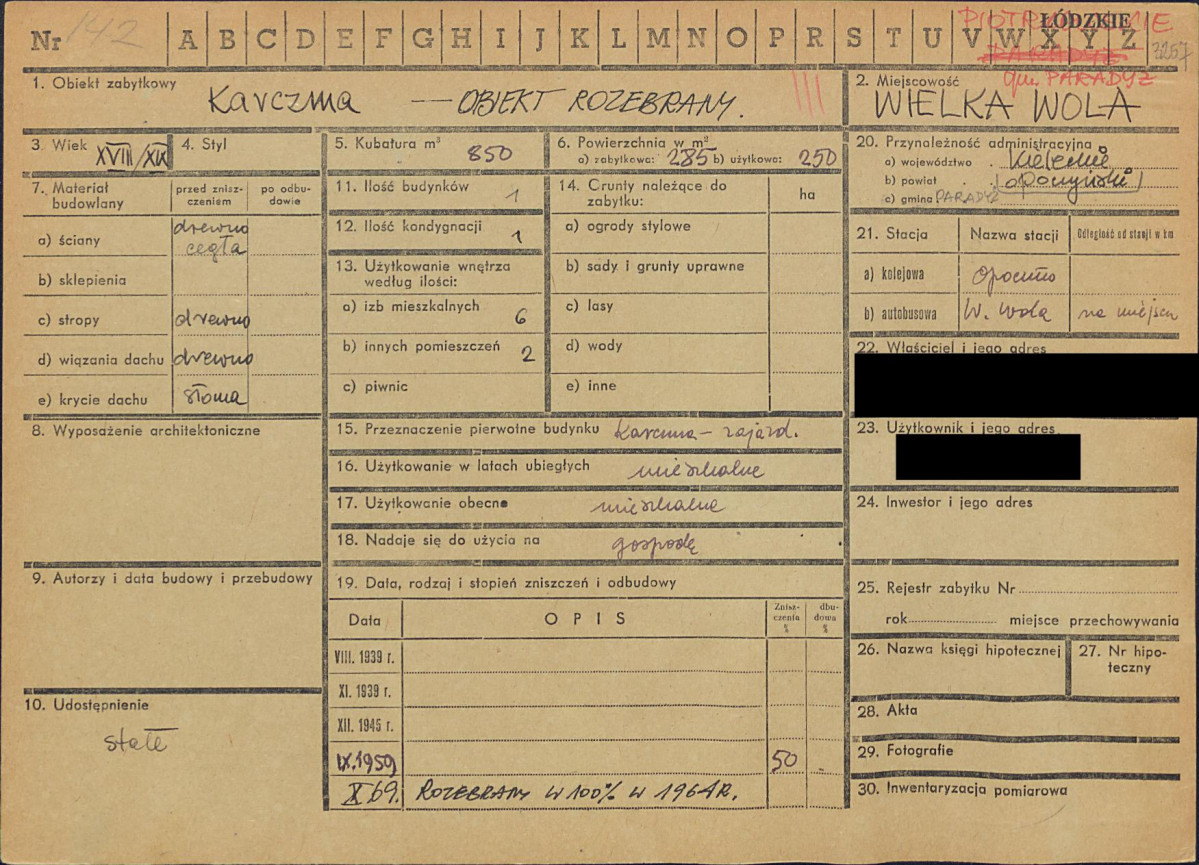 Nr 142 A B C D E F G H I J K L M N O P R S T U V W X Y Z
ŁÓDZKIE
PARADYŻ
gm. PARADYŻ
3257
1. Obiekt zabytkowy
Karczma — OBIEKT ROZEBRANY.
III
2. Miejscowość
WIELKA WOLA
3. Wiek XVIII/XIX
4. Styl
5. Kubatura m³ 850
6. Powierzchnia w m²
a) zabytkowa: 285 b) użytkowa: 250
7. Materiał budowlany
przed zniszczeniem
po odbudowie
a) ściany drewno cegła
b) sklepienia
c) stropy drewno
d) wiązania dachu drewno
e) krycie dachu słoma
8. Wyposażenie architektoniczne
9. Autorzy i data budowy i przebudowy
10. Udostępnienie
stałe
11. Ilość budynków 1
12. Ilość kondygnacji 1
13. Użytkowanie wnętrza
według ilości:
a) izb mieszkalnych 6
b) innych pomieszczeń 2
c) piwnic
14. Grunty należące do
zabytku:
ha
a) ogrody stylowe
b) sady i grunty uprawne
c) lasy
d) wody
e) inne
15. Przeznaczenie pierwotne budynku Karczma – zajazd.
16. Użytkowanie w latach ubiegłych mieszkalne
17. Użytkowanie obecne mieszkalne
18. Nadaje się do użycia na gospodę
19. Data, rodzaj i stopień zniszczeń i odbudowy
Data
OPIS
Zniszczenia %
dbudowa %
VIII. 1939 r.
XI. 1939 r.
XII. 1945 r.
IX.1959 50 -
X 69. ROZEBRANY W 100% W 1964R.
20. Przynależność administracyjna
a) województwo Kieleckie
b) powiat /opoczyński/
c) gmina PARADYŻ
21. Stacja
Nazwa stacji
Odległość od stacji w km
a) kolejowa Opoczno
b) autobusowa W. Wola na miejscu
22. Właściciel i jego adres
23. Użytkownik i jego adres
24. Inwestor i jego adres
25. Rejestr zabytku Nr
rok miejsce przechowywania
26. Nazwa księgi hipotecznej
27. Nr hipoteczny
28. Akta
29. Fotografie
30. Inwentaryzacja pomiarowa